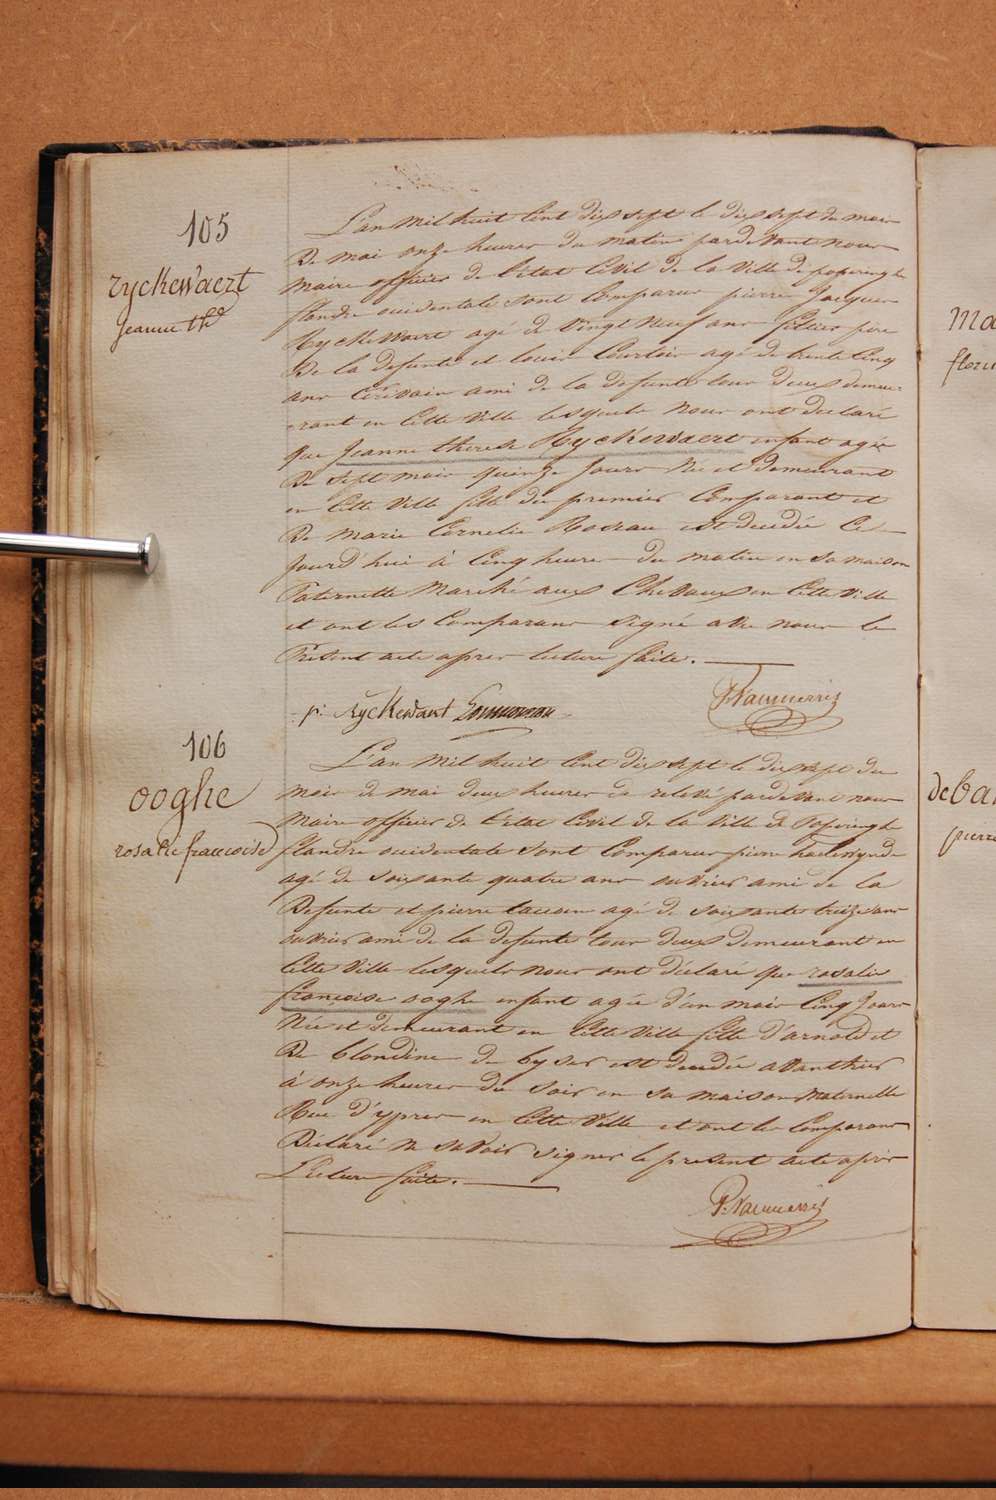 105
ryckewaert
jeanne thé
L'an mil huit cent dix sept le dix sept du mois
De mai onze heures du matin pardevant nous
maire officier de l'état Civil de la Ville de poperinghe
flandre occidentale sont Comparus pierre Jacques
Ryckewaert agé de Vingt Neuf ans fillier père
De la defunte et louis Courtois agé de trente Cinq
ans Ecrivain ami de la defunte tous deux demeu-
-rant en Cette Ville lesquels Nous ont declaré
que Jeanne therese Ryckewaert enfant agée
De sept mois quinze Jours Née et demeurant
en Cette Ville fille du premier Comparant et
De Marie Cornelie est decedée Ce
Jourd'hui à Cinq heures du matin en sa maison
Paternelle Marché aux Chevaux en Cette Ville
et ont les Comparans signé avec nous le
Present acte apres lecture faite.
p: ryckewaert
106
ooghe
rosalie francoise
L'an mil huit Cent dix sept le dix sept du
mois de mai deux heures de relevé pardevant nous
Maire officier de l'état Civil de la Ville de Poperinghe
flandre occidentale sont Comparus pierre
agé de soixante quatre ans ouvrier ami de la
Defunte et pierre agé de soixante treize ans
ouvrier ami de la defunte tous deux Demeurant en
Cette Ville lesquels nous ont déclaré que rosalie
françoise ooghe enfant agée d'un mois Cinq Jours
Née et demeurant en Cette Ville fille d'arnold et
De blondine de byser est decedée avanthier
à onze heures du Soir en sa maison Maternelle
Rue d'ypres en Cette Ville et ont les Comparans
Déclaré ne savoir signer le present acte après
Lecture faite.
Ma
deba
pierre